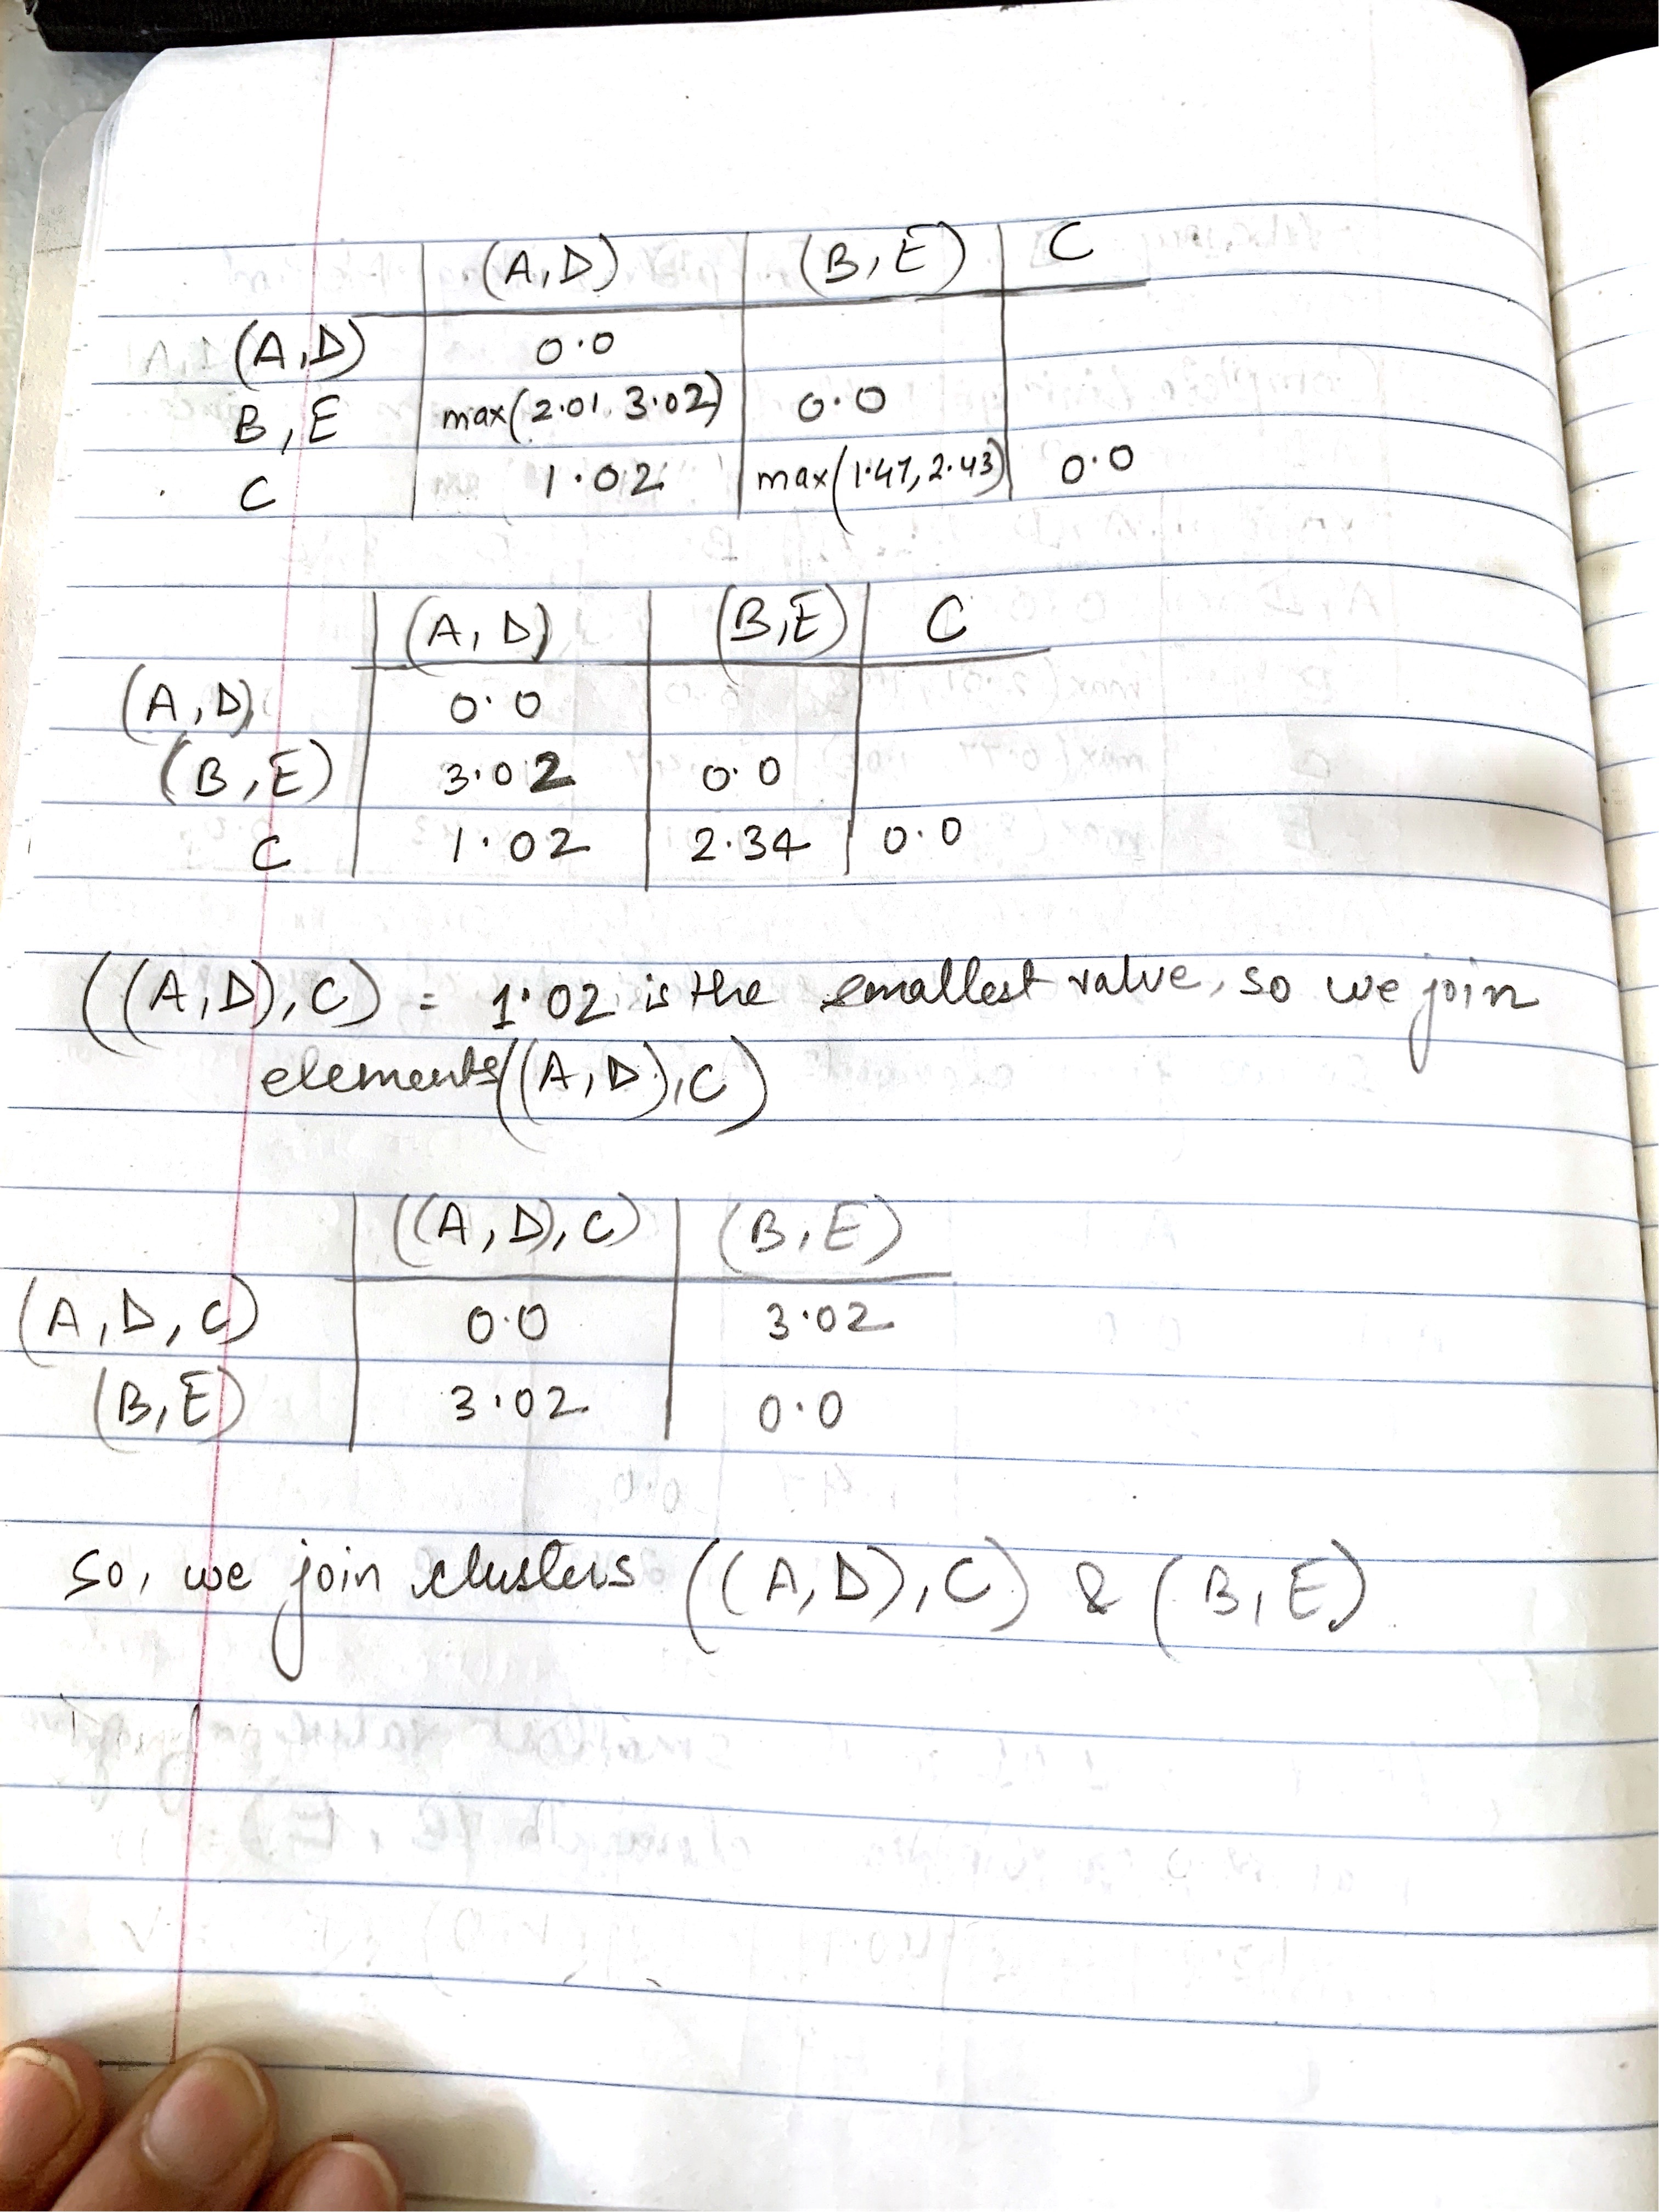 (A,D) (B,E) C
(A,D) 0.0
B,E max(2.01, 3.02) 0.0
C 1.02 max(1.47, 2.43) 0.0
(A, D) (B,E) C
(A,D) 0.0
(B,E) 3.02 0.0
C 1.02 2.34 0.0
((A,D),C) = 1.02 is the smallest value, so we join
elements((A,D),C)
((A,D),C) (B,E)
(A,D,C) 0.0 3.02
(B,E) 3.02 0.0
so, we join clusters ((A,D),C) & (B,E)